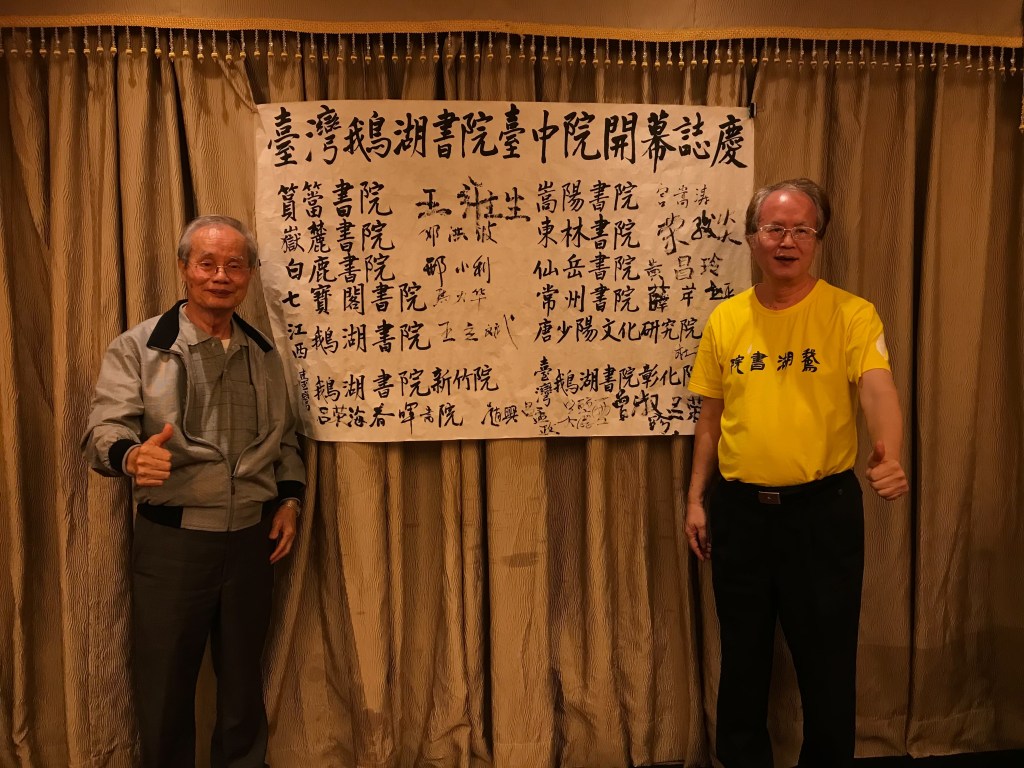 臺灣鵝湖書院臺中院開幕誌慶
篔簹書院
嶽麓書院 鄧洪波
白鹿書院 郭小利
七寶閣書院 馬大华
江西鵝湖書院 王立斌
臺灣鵝湖書院新竹院
呂荣海春暉書院
嵩陽書院 宮嵩涛
東林書院
仙岳書院 黃昌玲
常州書院 薛芊
唐少陽文化研究院
臺灣鵝湖書院彰化院
曾淑
院書湖鵞